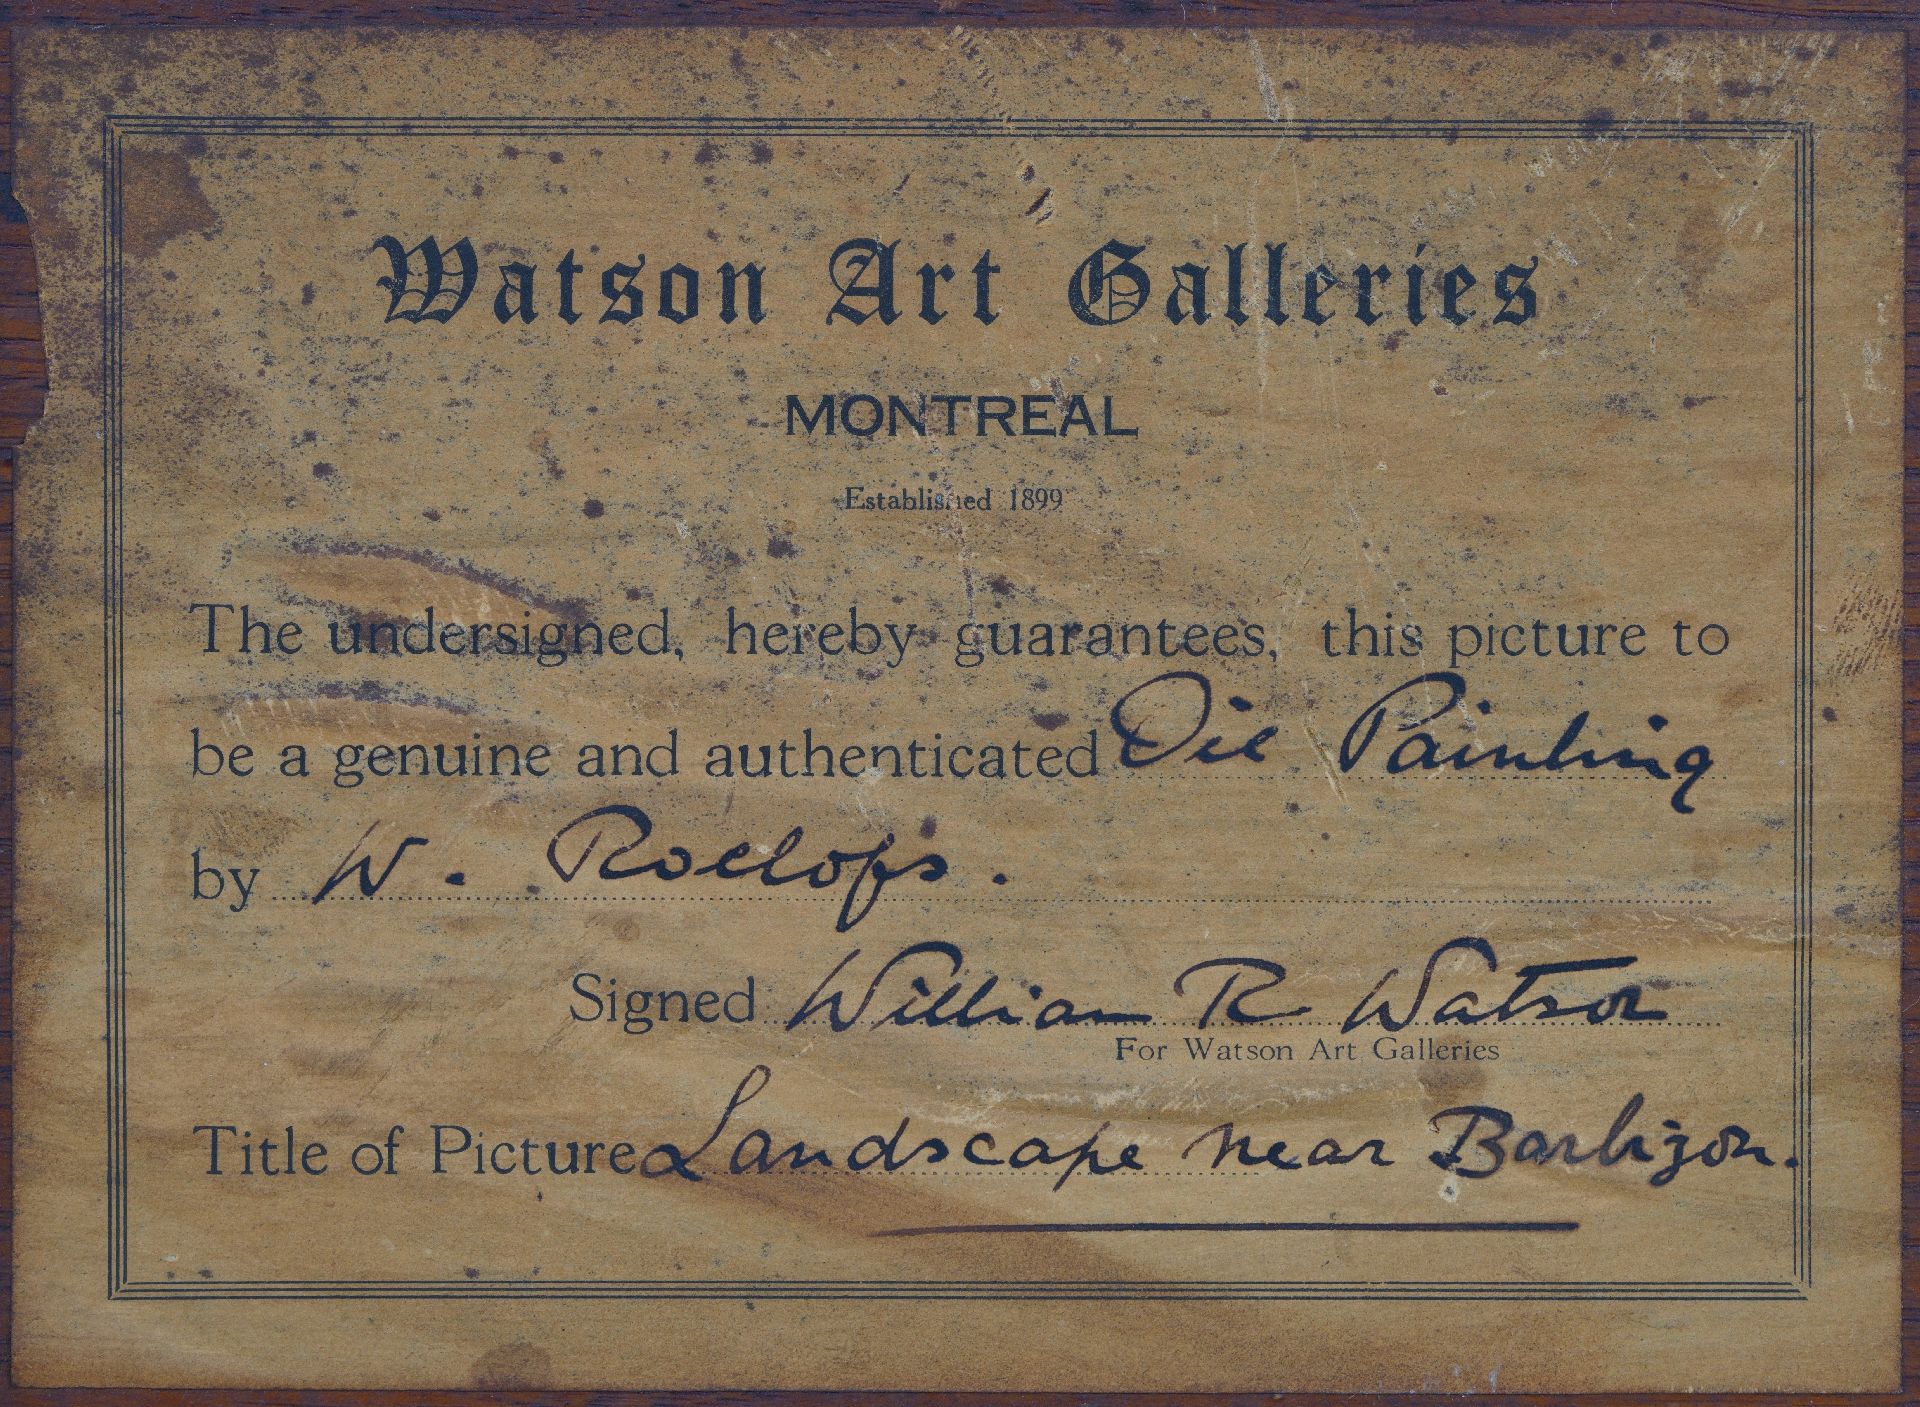 Watson Art Galleries
MONTREAL
Established 1899
The undersigned, hereby guarantees, this picture to
be a genuine and authenticated Oil Painting
by W. Roelofs.
Signed William R Watson
For Watson Art Galleries
Title of Picture Landscape near Barbizon.